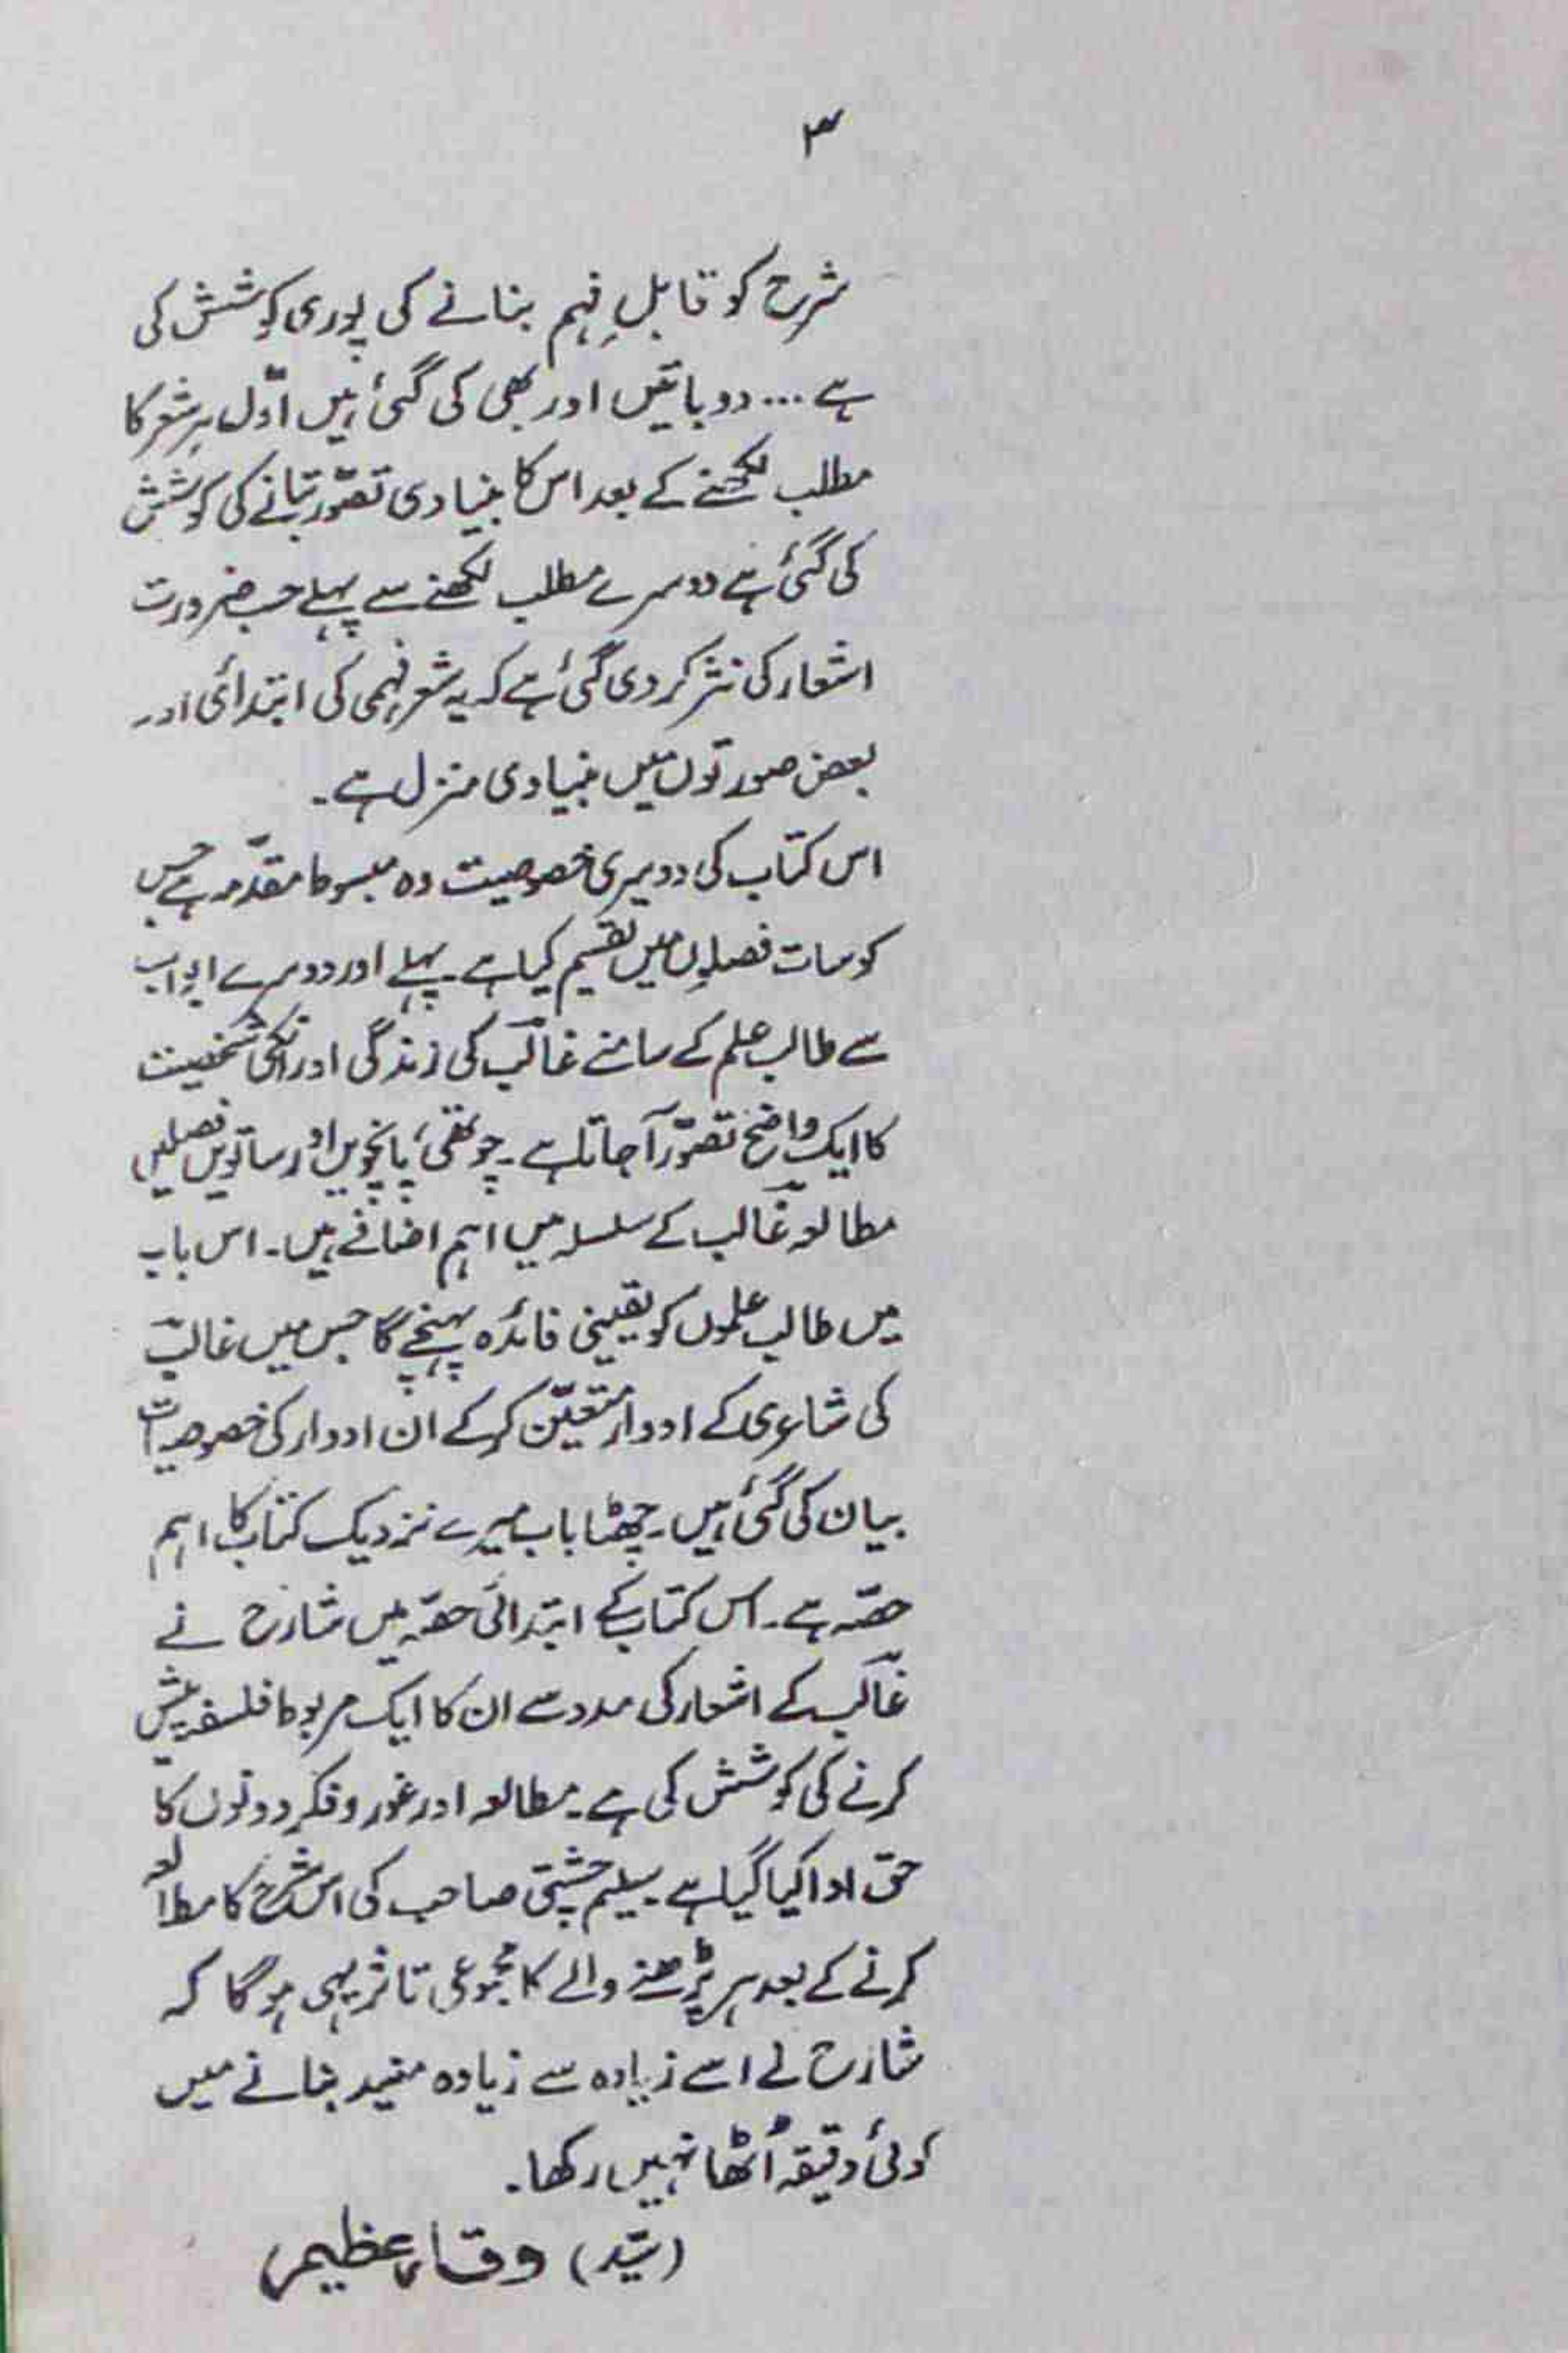 ۳
شرح کو قابلِ فہم بنانے کی پوری کوشش کی
ہے... دو باتیں اور بھی کی گئی ہیں اوّل ہر شعر کا
مطلب لکھنے کے بعد اس کا بنیادی تصوّر بتانے کی کوشش
کی گئی ہے دوسرے مطلب لکھنے سے پہلے حسب ضرورت
اشعار کی نثر کر دی گئی ہے کہ یہ شعر فہمی کی ابتدائی اور
بعض صورتوں میں بنیادی منزل ہے۔
اس کتاب کی دوسری خصوصیت وہ مبسوط مقدّمہ ہے جس
کو سات فصلوں میں تقسیم کیا ہے۔ پہلے اور دوسرے ابواب
سے طالب علم کے سامنے غالبؔ کی زندگی اور انکی شخصیت
کا ایک واضح تصوّر آ جاتا ہے۔ چوتھی، پانچویں اور ساتویں فصلیں
مطالعہ غالبؔ کے سلسلہ میں اہم اضافے ہیں۔ اس باب
میں طالب علموں کو یقینی فائدہ پہنچے گا جس میں غالبؔ
کی شاعری کے ادوار متعیّن کر کے ان ادوار کی خصوصیات
بیان کی گئی ہیں۔ چھٹا باب میرے نزدیک کتاب کا اہم
حصّہ ہے۔ اس کتاب کے ابتدائی حصّہ میں شارح نے
غالبؔ کے اشعار کی مدد سے ان کا ایک مربوط فلسفہ پیش
کرنے کی کوشش کی ہے۔ مطالعہ اور غور و فکر دونوں کا
حق ادا کیا گیا ہے۔ سلیم چشتی صاحب کی اس شرح کا مطالعہ
کرنے کے بعد ہر پڑھنے والے کا مجموعی تاثر یہی ہو گا کہ
شارح نے اسے زیادہ سے زیادہ مفید بنانے میں
کوئی دقیقہ اُٹھا نہیں رکھا۔
(سیّد) وقار عظیم